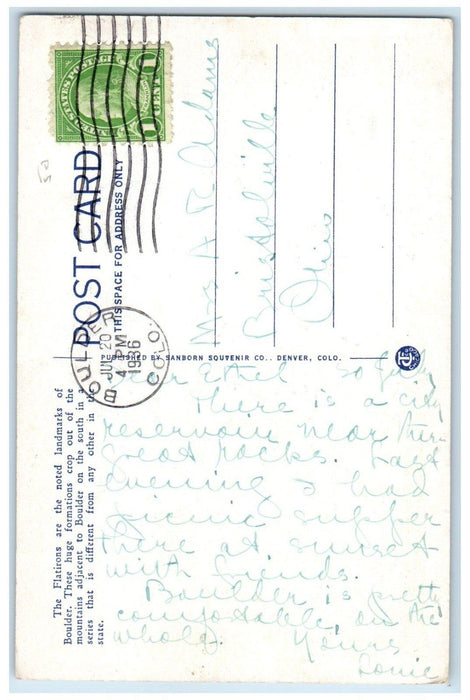 UNITED STATES POSTAGE
1 CENT 1
POST CARD
THIS SPACE FOR ADDRESS ONLY
BOULDER
JUL 20
4 PM
1936
COLO.
Mrs A R Adams
Bristolville
Ohio
PUBLISHED BY SANBORN SOUVENIR CO., DENVER, COLO.
The Flatirons are the noted landmarks of
Boulder. These huge formations crop out of the
mountains adjacent to Boulder on the south in a
series that is different from any other in the
state.
Dear Ethel
There is a city
reservoir near these
great rocks. Last
evening I had
picnic supper
there at sunset
with friends.
Boulder is pretty
comfortable, on the
whole. Yours